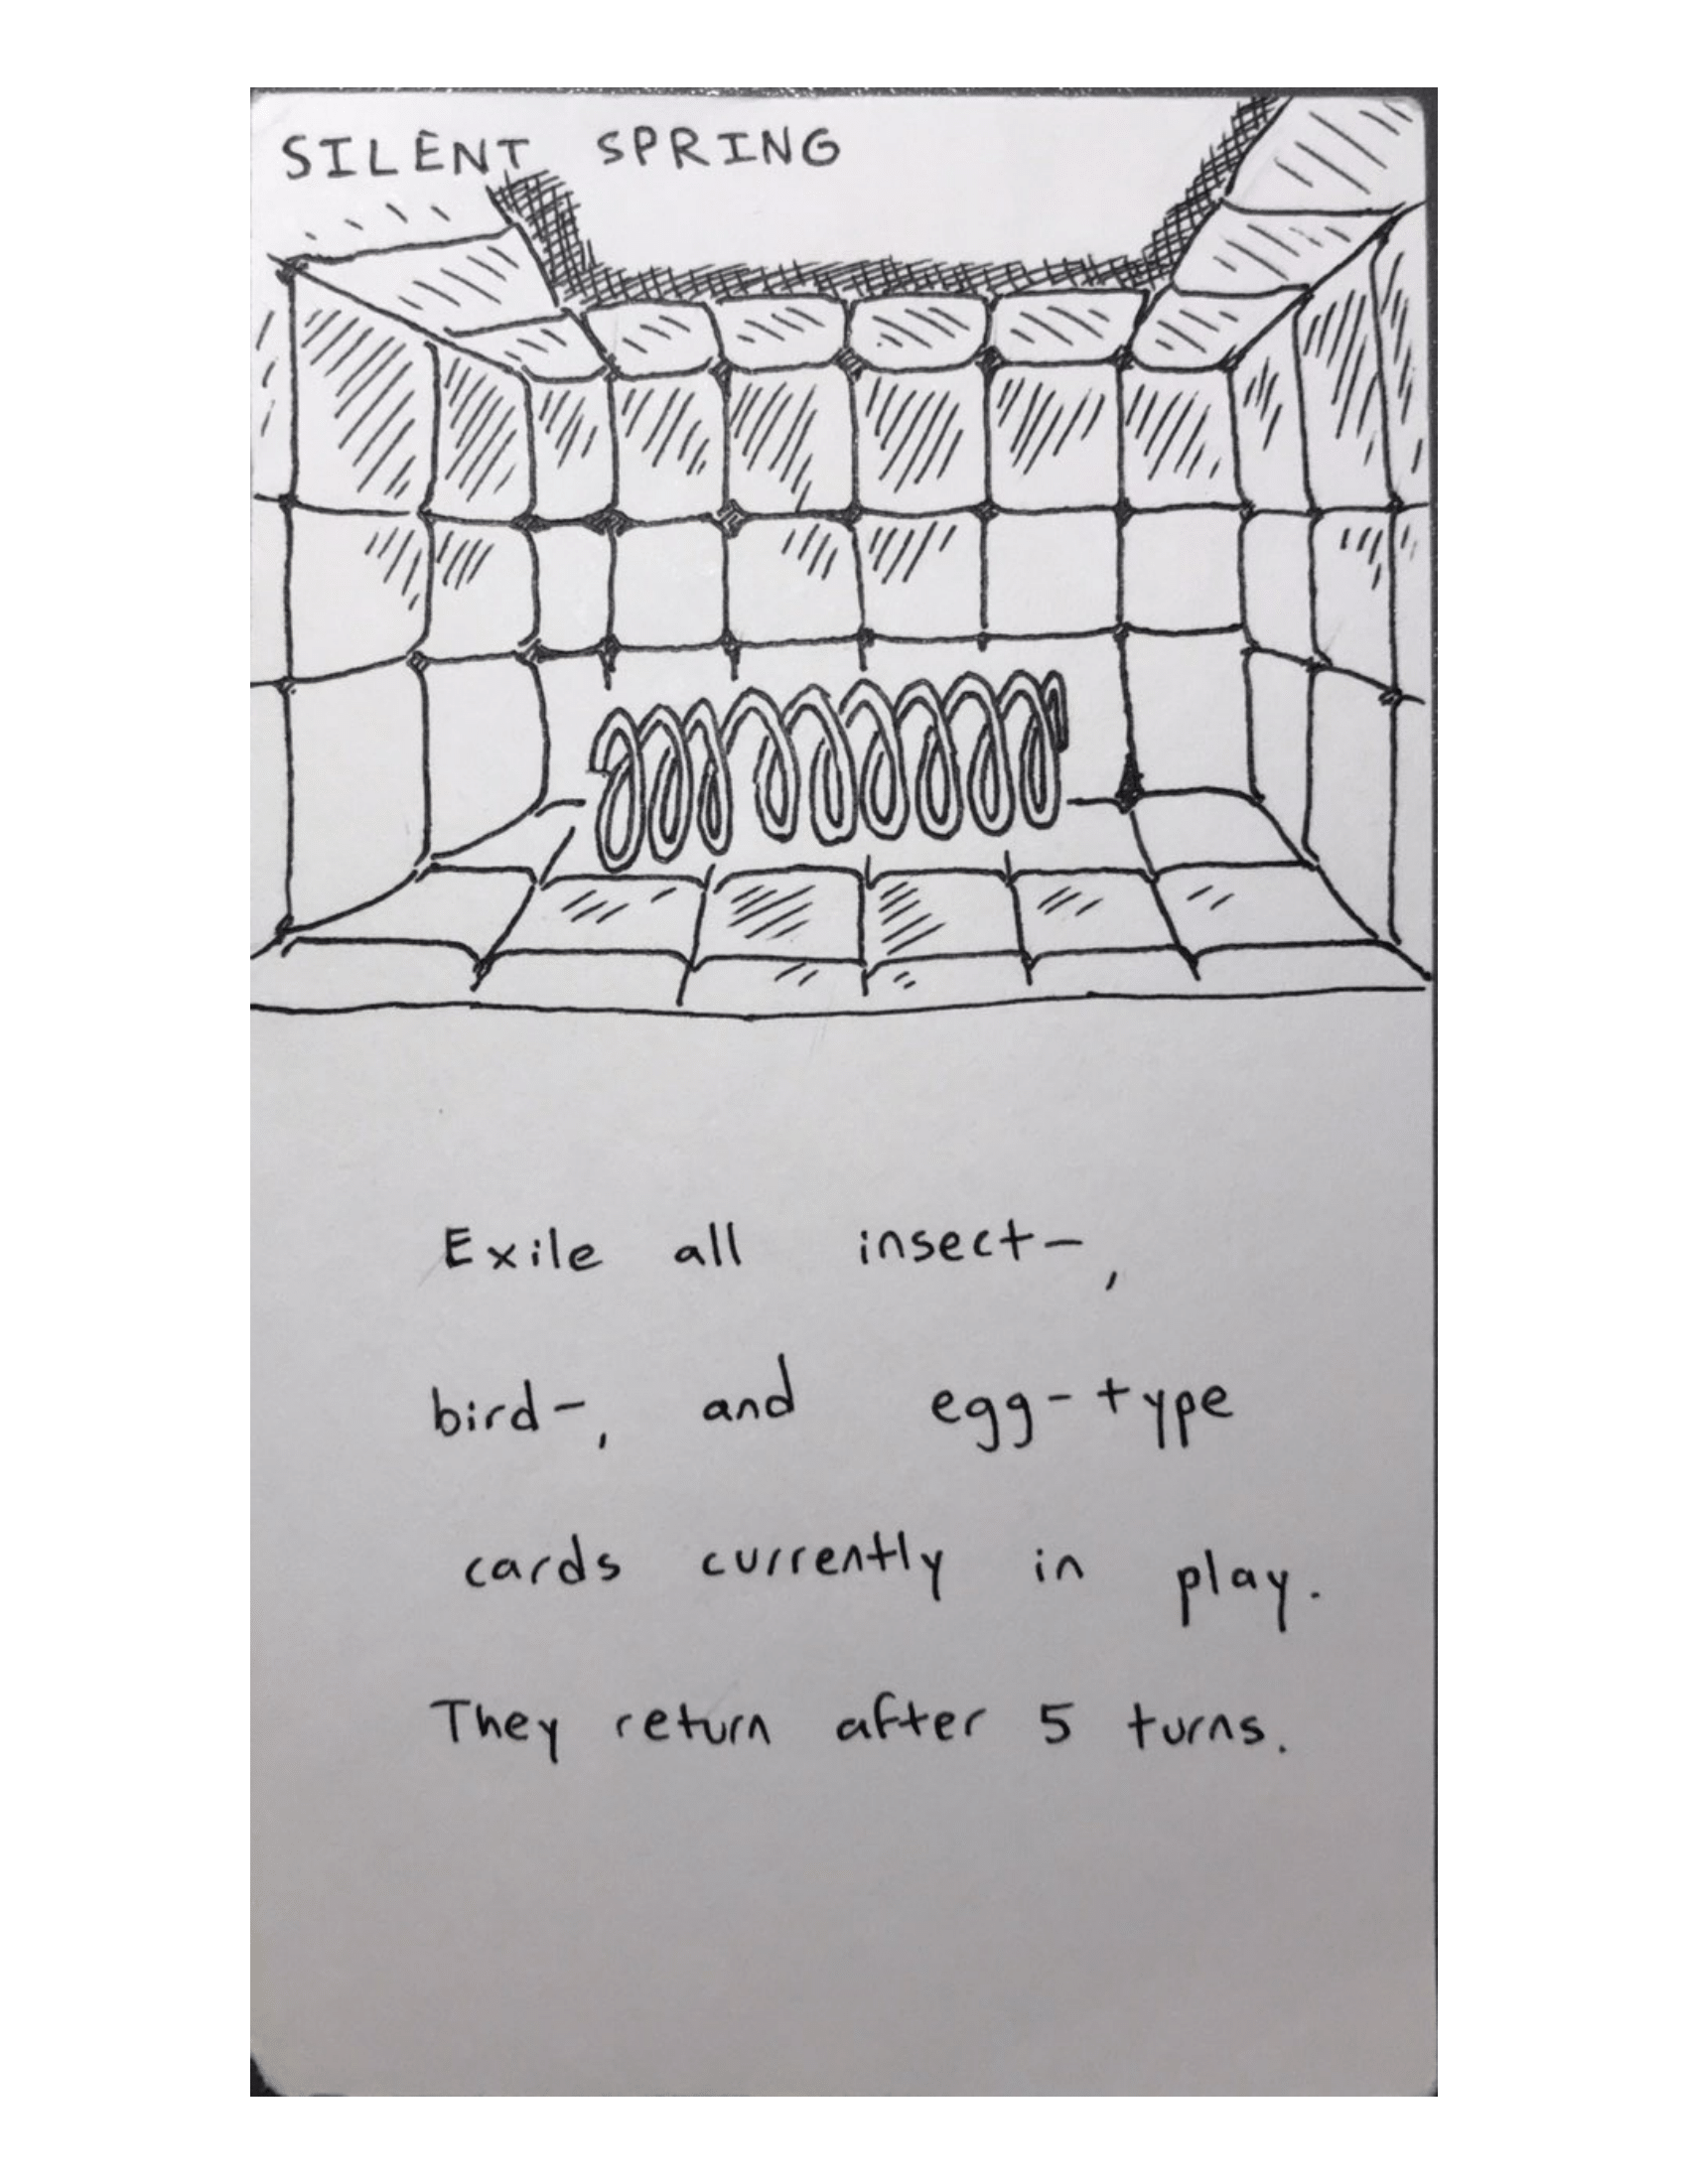 SILENT SPRING
Exile all insect-,
bird-, and egg-type
cards currently in play.
They return after 5 turns.